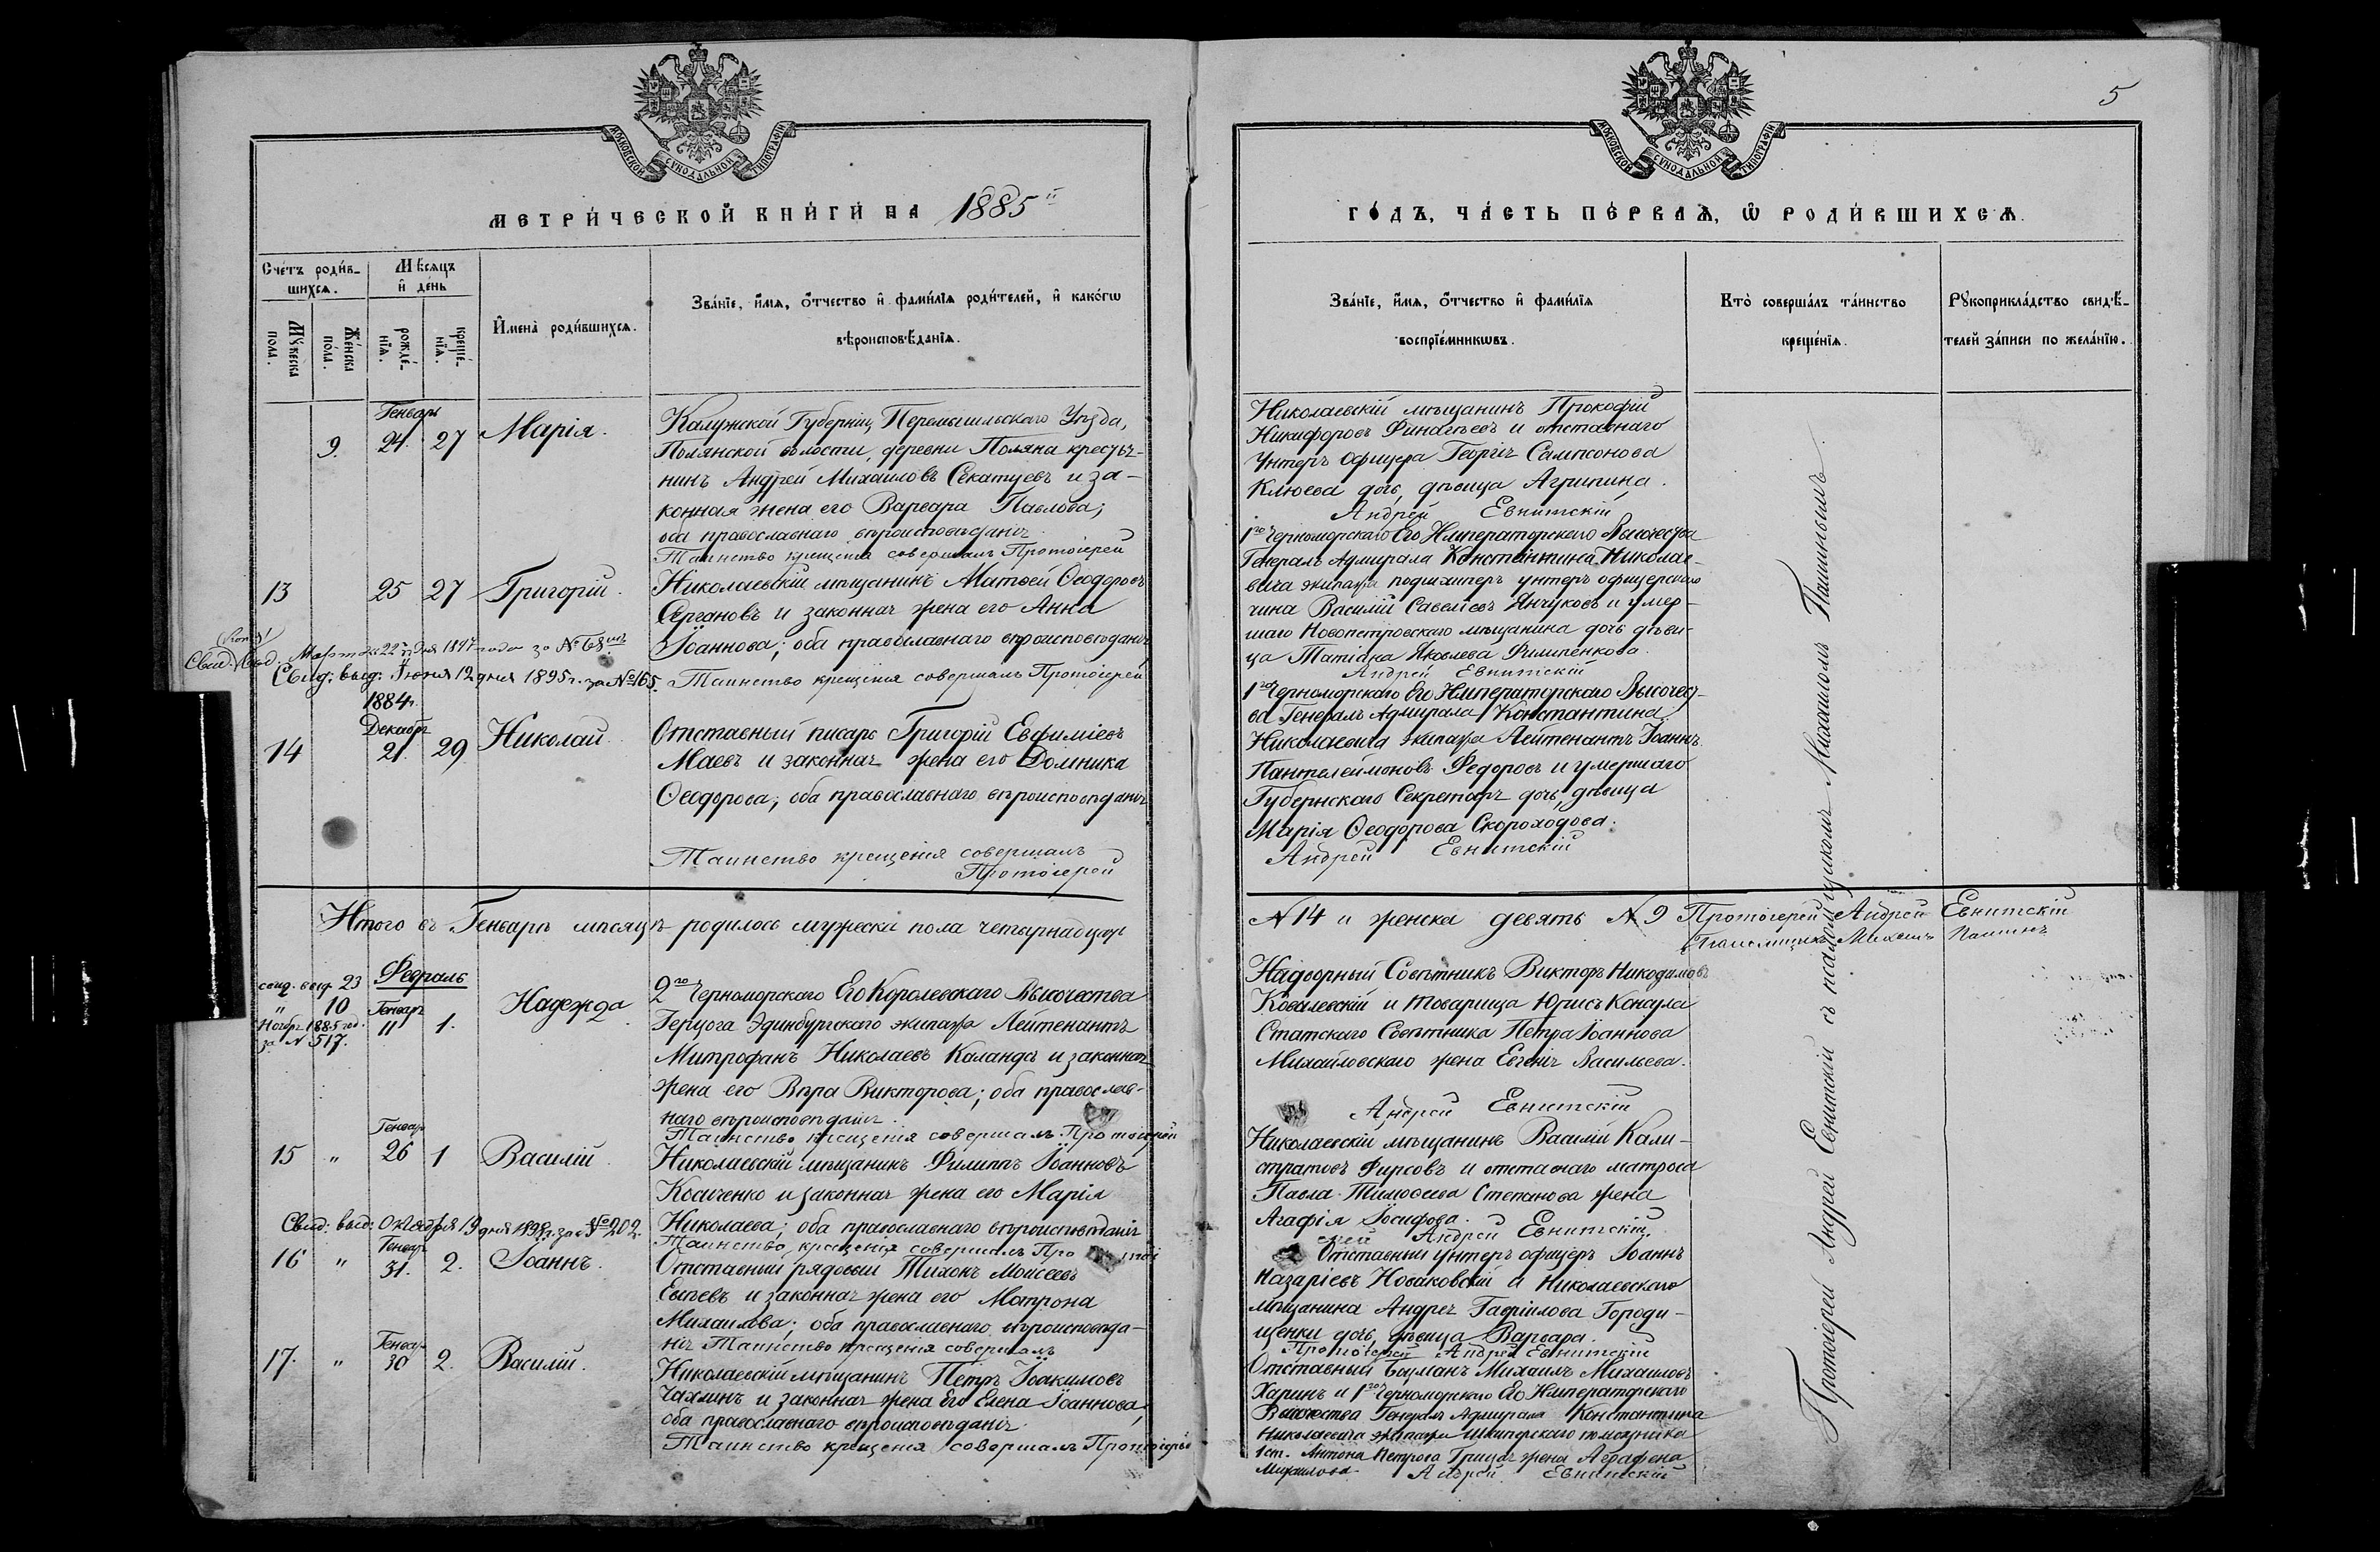 МОСКОВСКОЙ СѴНОДАЛЬНОЙ ТИПОГРАФІИ
МЕТРИЧЕСКОЙ КНИГИ НА 1885й
Счетъ родившихся.
Мужеска пола.
Женска пола.
Мѣсяцъ и день
рожденія.
крещенія.
Имена родившихся.
Званіе, имя, отчество и фамилія родителей, и какогѡ
вѣроисповѣданія.
9. Генварь 24. 27 Марія.
Калужской Губерніи Перемышльскаго Уѣзда,
Полянской волости, деревни Поляна крестья-
нинъ Андрей Михаиловъ Секатуевъ и за-
конная жена его Варвара Павлова;
оба православнаго вѣроисповѣданія
Таинство крещенія совершалъ Протоіерей
13 25 27 Григорій.
Николаевскій мѣщанинъ Матѳей Ѳеодоровъ
и законная жена его Анна
Іоаннова; оба православнаго вѣроисповѣданія
Марта 22 дня 1897 года за № 68
Свид. выд. Іюня 12 дня 1895 г. за № 165.
Таинство крещенія совершалъ Протоіерей
14 1884 г. Декабря 21. 29 Николай.
Отставный писарь Григорій Евфиміевъ
Маевъ и законная жена его Домника
Ѳеодорова; оба православнаго вѣроисповѣданія
Таинство крещенія совершалъ
Протоіерей
Итого въ Генварѣ мѣсяцѣ родилось мужеска пола четырнадцать
Февраль
свид. выд. 23
" 10 Генваря " 1. Надежда
Ноября 1885 год.
за № 517.
2го Черноморскаго Его Королевскаго Высочества
Герцога Эдинбургскаго экипажа Лейтенантъ
Митрофанъ Николаевъ Каландсъ и законная
жена его Вѣра Викторова; оба православ-
наго вѣроисповѣданія.
Таинство крещенія совершалъ Протоіерей
15 " Генваря 26 1 Василій.
Николаевскій мѣщанинъ Филиппъ Іоанновъ
Косиченко и законная жена его Марія
Николаева; оба православнаго вѣроисповѣданія
Свид: выд: Октября 19 дня 1898 г. за № 202.
Таинство крещенія совершалъ
16 " Генваря 31. 2. Іоаннъ.
Отставный рядовый Тихонъ Моисеевъ
и законная жена его Матрона
Михаилова; оба православнаго вѣроисповѣда-
нія Таинство крещенія совершалъ
17. " Генваря 30 2. Василій.
Николаевскій мѣщанинъ Петръ Іоакимовъ
Чаялинъ и законная жена его Елена Іоаннова,
оба православнаго вѣроисповѣданія.
Таинство крещенія совершалъ Протоіерей
5
МОСКОВСКОЙ СѴНОДАЛЬНОЙ ТИПОГРАФІИ
ГОДЪ, ЧАСТЬ ПЕРВАЯ, Ѡ РОДИВШИХСЯ.
Званіе, имя, отчество и фамилія
воспріемникѡвъ.
Кто совершалъ таинство
крещенія.
Рукоприкладство свидѣ-
телей записи по желанію.
Николаевскій мѣщанинъ Прокофій
Никифоровъ Финагеевъ и отставнаго
Унтеръ офицера Георгія Сампсонова
Клюева дочь, дѣвица Агрипина.
Андрей Евнитскій
1го Черноморскаго Его Императорскаго Высочества
Генералъ Адмирала Константина Николае-
вича экипажа подшхиперъ унтеръ офицерскаго
чина Василій Савеліевъ Янчуковъ и умер-
шаго Новопетровскаго мѣщанина дочь дѣви-
ца Татіана Яковлева Филипенкова.
Андрей Евнитскій
1го Черноморскаго Его Императорскаго Высочест-
ва Генералъ Адмирала Константина
Николаевича экипажа Лейтенантъ Іоаннъ
Пантелеймоновъ Федоровъ и умершаго
Губернскаго Секретаря дочь, дѣвица
Марія Ѳеодорова Скороходова.
Андрей Евнитскій
№ 14 и женска девять № 9 Протоіерей Андрей Евнитскій
Псаломщикъ Михаилъ Пашинъ
Надворный Совѣтникъ Викторъ Никодимовъ
Ковалевскій и товарища Юрисъ Консула
Статскаго Совѣтника Петра Іоаннова
Михайловскаго жена Евгенія Васильева.
Андрей Евнитскій
Николаевскій мѣщанинъ Василій Кали-
стратовъ Фирсовъ и отставнаго матроса
Павла Тимоѳеева Степанова жена
Агафія Іосифова.
Андрей Евнитскій
Отставный унтеръ офицеръ Іоаннъ
Назаріевъ Новаковскій и Николаевскаго
мѣщанина Андрея Гавріилова Городи-
щенки дочь, дѣвица Варвара.
Протоіерей Андрей Евнитскій
Отставный боцманъ Михаилъ Михаиловъ
Харинъ и 1го Черноморскаго Его Императорскаго
Высочества Генералъ Адмирала Константина
Николаевича экипажа Шкиперскаго помощника
1 ст. Антона Петрова Грицая жена Аграфена
Михаилова. Андрей Евнитскій
Протоіерей Андрей Евнитскій съ псаломщикомъ Михаиломъ Пашинымъ.